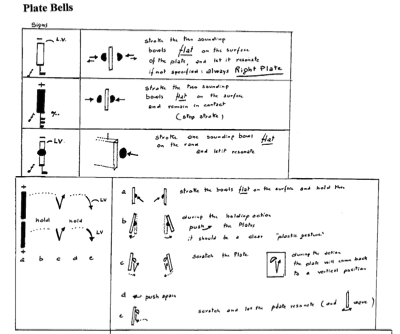 Plate Bells
Signs
L.V.
stroke the two sounding
bowls flat on the surface
of the plate, and let it resonate
if not specified: always Right Plate
stroke the two sounding
bowls flat on the surface
and remain in contact
(stop stroke)
LV
stroke one sounding bowl flat
on the rand
and let it resonate
LV
hold hold
LV
a b c d e
a stroke the bowls flat on the surface and hold them
b during the holding action
push the Plates
it should be a clear "plastic gesture"
c scratch the Plate
during the action
the plate will come back
to a vertical position
d push again
e scratch and let the plate resonate (and move)